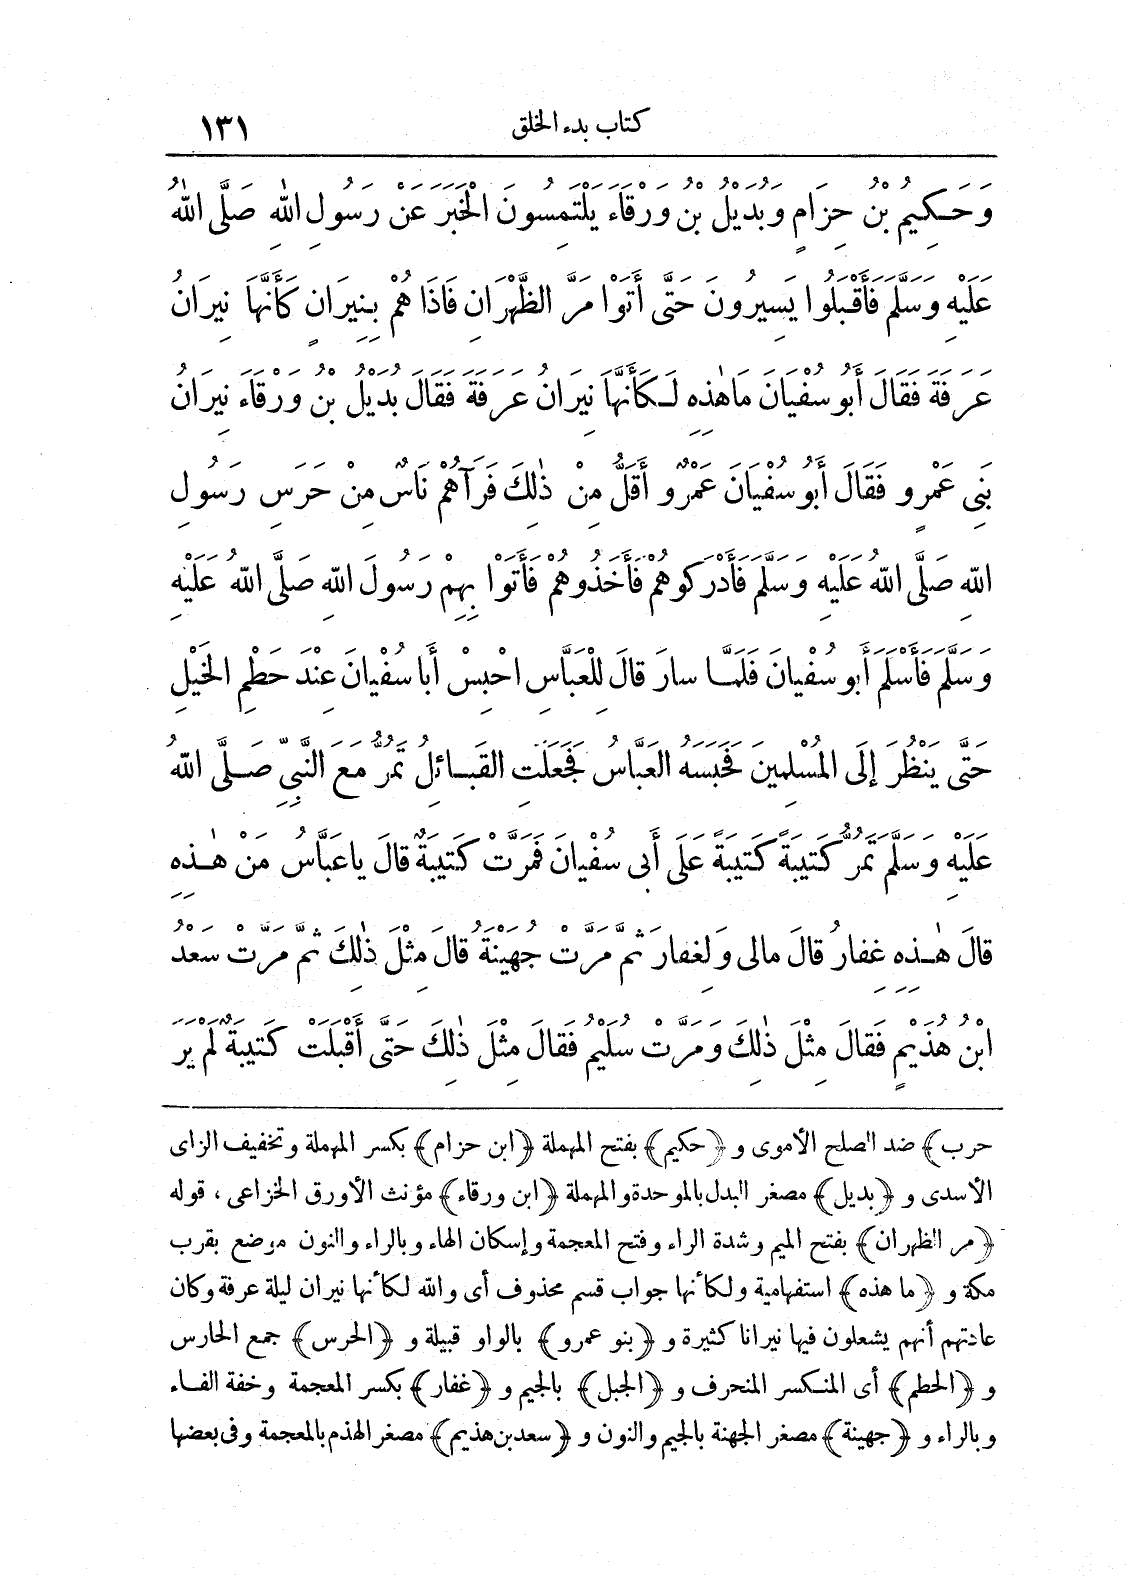 كتاب بدء الخلق
١٣١
وَحَكِيمُ بْنُ حِزَامٍ وَبُدَيْلُ بْنُ وَرْقَاءَ يَلْتَمِسُونَ الْخَبَرَ عَنْ رَسُولِ اللهِ صَلَّى اللهُ
عَلَيْهِ وَسَلَّمَ فَأَقْبَلُوا يَسِيرُونَ حَتَّى أَتَوْا مَرَّ الظَّهْرَانِ فَاذَا هُمْ بِنِيرَانٍ كَأَنَّهَا نِيرَانُ
عَرَفَةَ فَقَالَ أَبُو سُفْيَانَ مَاهٰذِهِ لَكَأَنَّهَا نِيرَانُ عَرَفَةَ فَقَالَ بُدَيْلُ بْنُ وَرْقَاءَ نِيرَانُ
بَنِى عَمْرٍو فَقَالَ أَبُو سُفْيَانَ عَمْرٌو أَقَلُّ مِنْ ذٰلِكَ فَرَآهُمْ نَاسٌ مِنْ حَرَسِ رَسُولِ
اللهِ صَلَّى اللهُ عَلَيْهِ وَسَلَّمَ فَأَدْرَكُوهُمْ فَأَخَذُوهُمْ فَأَتَوْا بِهِمْ رَسُولَ اللهِ صَلَّى اللهُ عَلَيْهِ
وَسَلَّمَ فَأَسْلَمَ أَبُو سُفْيَانَ فَلَمَّا سَارَ قَالَ لِلْعَبَّاسِ احْبِسْ أَبَا سُفْيَانَ عِنْدَ حَطْمِ الْخَيْلِ
حَتَّى يَنْظُرَ إِلَى الْمُسْلِمِينَ فَحَبَسَهُ الْعَبَّاسُ فَجَعَلَتِ الْقَبَائِلُ تَمُرُّ مَعَ النَّبِىِّ صَلَّى اللهُ
عَلَيْهِ وَسَلَّمَ تَمُرُّ كَتِيبَةً كَتِيبَةً عَلَى أَبِى سُفْيَانَ فَمَرَّتْ كَتِيبَةٌ قَالَ يَاعَبَّاسُ مَنْ هٰذِهِ
قَالَ هٰذِهِ غِفَارُ قَالَ مَالِى وَلِغِفَارَ ثُمَّ مَرَّتْ جُهَيْنَةُ قَالَ مِثْلَ ذٰلِكَ ثُمَّ مَرَّتْ سَعْدُ
ابْنُ هُذَيْمٍ فَقَالَ مِثْلَ ذٰلِكَ وَمَرَّتْ سُلَيْمُ فَقَالَ مِثْلَ ذٰلِكَ حَتَّى أَقْبَلَتْ كَتِيبَةٌ لَمْ يَرَ
حرب﴾ ضد الصلح الأموى و ﴿حكيم﴾ بفتح المهملة ﴿ابن حزام﴾ بكسر المهملة وتخفيف الزاى
الأسدى و ﴿بديل﴾ مصغر البدل بالموحدة والمهملة ﴿ابن ورقاء﴾ مؤنث الأورق الخزاعى ، قوله
﴿مر الظهران﴾ بفتح الميم وشدة الراء وفتح المعجمة وإسكان الهاء وبالراء والنون موضع بقرب
مكة و ﴿ما هذه﴾ استفهامية ولكأنها جواب قسم محذوف أى والله لكأنها نيران ليلة عرفة وكان
عادتهم أنهم يشعلون فيها نيرانا كثيرة و ﴿بنو عمرو﴾ بالواو قبيلة و ﴿الحرس﴾ جمع الحارس
و ﴿الحطم﴾ أى المنكسر المنحرف و ﴿الجبل﴾ بالجيم و ﴿غفار﴾ بكسر المعجمة وخفة الفاء
وبالراء و ﴿جهينة﴾ مصغر الجهنة بالجيم والنون و ﴿سعد بن هذيم﴾ مصغر الهذم بالمعجمة وفى بعضها